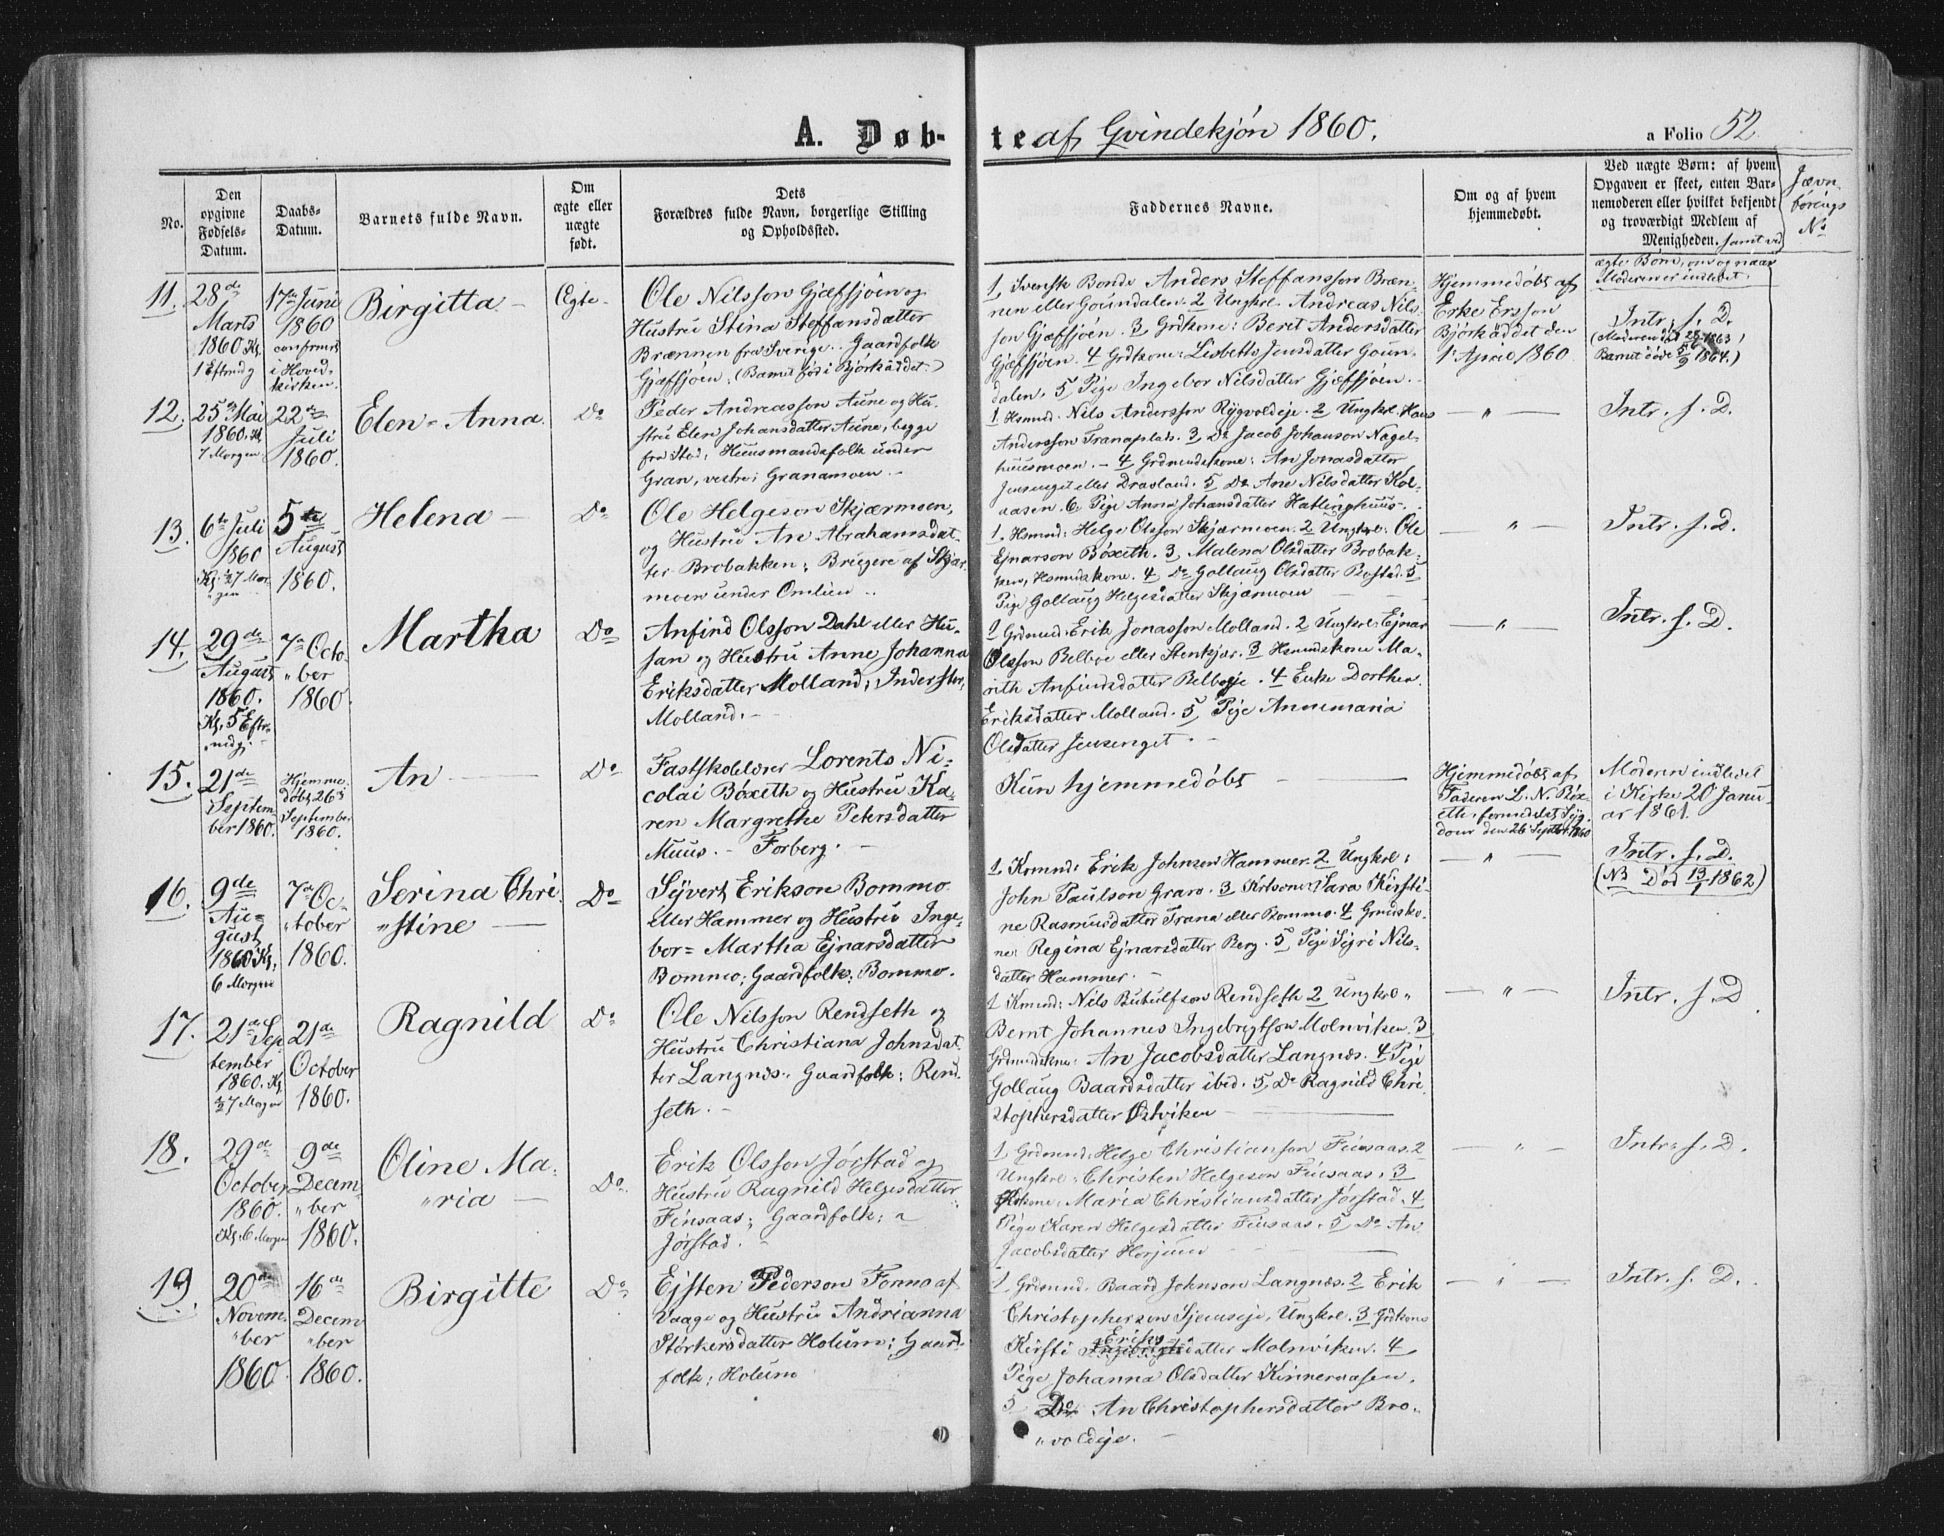 A. Døb-
te af Qvindekjøn 1860.
a Folio 52
No.
Den opgivne Fødsels-Datum.
Daabs-Datum.
Barnets fulde Navn.
Om ægte eller uægte født.
Dets Forældres fulde Navn, borgerlige Stilling og Opholdssted.
Faddernes Navne.
Om og af hvem hjemmedøbt.
Ved uægte Børn: af hvem Opgaven er skeet, enten Barnemoderen eller hvilket bekjendt og troværdigt Medlem af Menigheden. samt ved ægte Børn, om og naar Moderen er indledet.
Jævnførings No
11.
28de Marts 1860 Kl. 1 Eftmdg
17de Juni 1860 confirmt i Hoved-kirken.
Birgitta
Ægte
Ole Nilsson Gjæfsjøen og
Hustru Stina Steffansdatter
Brænnen fra Sverige. Gaardfolk
Gjæfsjøen. (Barnet född i Björkäddet.)
1, Svensk Bonde Anders Steffansson Bræn-
nen eller Goundalen. 2 Ungkrl. Andreas Nils-
son Gjæfsjøen. 3 Grdkone: Beret Andersdatter
Gjæfsjøen. 4 Grdkone: Lisbeth Jonsdatter Goun-
dalen. 5 Pige Ingebor Nilsdatter Gjæfsjøen.
Hjemmedøbt af
Erke Ersson
Björkäddet den
1 April 1860
Intr. f. D.
(Moderen död 1863
Barnet døde 1864.)
12.
25de Mai 1860. Kl 7 Morgen
22de Juli 1860.
Elen-Anna.
Do
Peder Andreasson Aune og Hu-
stru Elen Johansdatter Aune, begge
fra Stod; Huusmandsfolk under
Gran, vestre; Granamoen.
1 Hsmnd. Nils Andersson Rygvoldeje. 2 Ungkrl. Hans
Andersson Tranaplats. 3 Do Jacob Johanson Nagel-
huusmoen. 4 Grdmndskone: An Jonasdatter
Jensenget eller Dravland. 5 Do Ane Nilsdatter Kol-
aasen. 6 Pige Anna Johansdatter Hatlinghuus
— " —
Intr. f. D.
13.
6te Juli 1860 Kl. 1/2 7 Mor-gen
5te August 1860.
Helena
Do
Ole Helgeson Skjærmoen,
og Hustru An Abrahamsdat-
ter Brobakken; Brugere af Skjær-
moen under Omlien
1. Hsmnd: Helge Olsson Skjærmoen. 2 Ungkrl. Ole
Ejnarson Bøxeth. 3 Malena Olsdatter Brobak-
ken, Hsmndskone. 4 Do Gollaug Olsdatter Rostad. 5
Pige Gollaug Helgesdatter Skjærmoen
— " —
Intr. f. D.
14.
29de August 1860. Kl. 5 Eftr-mdg.
7de Octo-ber 1860
Martha
Do
Anfind Olsson Dahl eller Hu-
san og Hustru Anne Johanna
Eriksdatter Molland; Inderster,
Molland.
1 Grdmnd: Erik Jonasson Molland. 2 Ungkrl: Ejnar
Olsson Belboe eller Stenkjær. 3 Hsmndskone Ma-
rith Anfindsdatter Belboeje. 4 Enke Dorthea
Eriksdatter Molland. 5 Pige Annemaria
Olsdatter Jensenget.
— " —
Intr. f. D.
15.
21de Septem-ber 1860.
Hjemme-døbt 26de September 1860.
An
Do
Fastskolelærer Lorents Ni-
colai Bøxeth og Hustru Ka-
ren Margrethe Petersdatter
Muus. Forberg.
Kun hjemmedøbt
Hjemmedøbt af
Faderen L. N. Bøx-
eth, formedelst Syg-
dom den 26 Septbr 1860
Moderen indledet
i Kirke 20 Janu-
ar 1861.
16.
9de Au-gust 1860 Kl. 6 Morgen
7de Oc-tober 1860.
Serina Chri-
stine
Do
Syvert Erikson Bommo
eller Hammer og Hustru Inge-
bor-Martha Ejnarsdatter
Bommo; Gaardfolk; Bommo.
1 Krmnd: Erik Johnsen Hammer. 2 Ungkrl:
John Paulson Gravo. 3 Krlsone: Sara Kirsti-
ne Rasmusdatter Trana eller Bommo. 4 Grmdsko-
ne: Regina Ejnarsdatter Berg. 5 Pige Sigri Nils-
datter Hammer.
— " —
Intr. f. D.
(NB Død 13/1 1862)
17.
21de Sep-tember 1860. Kl 1/2 7 Morgen
21de October 1860.
Ragnild
Do
Ole Nilsson Rendseth og
Hustru Christiana Johnsdat-
ter Langnes; Gaardfolk; Rend-
seth.
1 Kmnd: Nils Butulfson Rendseth 2 Ungkrl "
Bernt Johannes Ingebrygtson Molnviken. 3
Grdmndskone: An Jacobsdatter Langnes. 4 Pige
Gollaug Baardsdatter ibid. 5 Do Ragnild Chri-
stophersdatter Østviken
— " —
Intr. f. D
18.
29de October 1860. Kl. 6 Morgen
9de Decem-ber 1860.
Oline Ma-
ria
Do
Erik Olsson Jørstad og
Hustru Ragnild Helgesdatter
Finsaas; Gaardfolk;
Jørstad.
1 Grdmnd: Helge Christianson Finsaas. 2
Ungkrl: Christen Helgeson Finsaas. 3
Kone: Maria Christiansdatter Jørstad. 4
Pige Karen Helgesdatter Finsaas. 5 Do An
Jacobsdatter Horjuen
— " —
Intr. f. D.
19.
20de Novem-ber 1860.
16de Decem-ber 1860.
Birgitte
Do
Ejsten Pederson Formo af
Vaage og Hustru Andrianna
Størkersdatter Holum; Gaard-
folk; Holum
1 Grdmnd. Baard Johnson Langnes. 2 Erik
Christopherson Tjemseje, Ungkrl. 3 Grdkone
Kirsti Eriksdatter Molnviken. 4
Pige Johanna Olsdatter Kinneraasen.
5 Do An Christophersdatter Bro-
voldeje.
— " —
Intr. f. D.